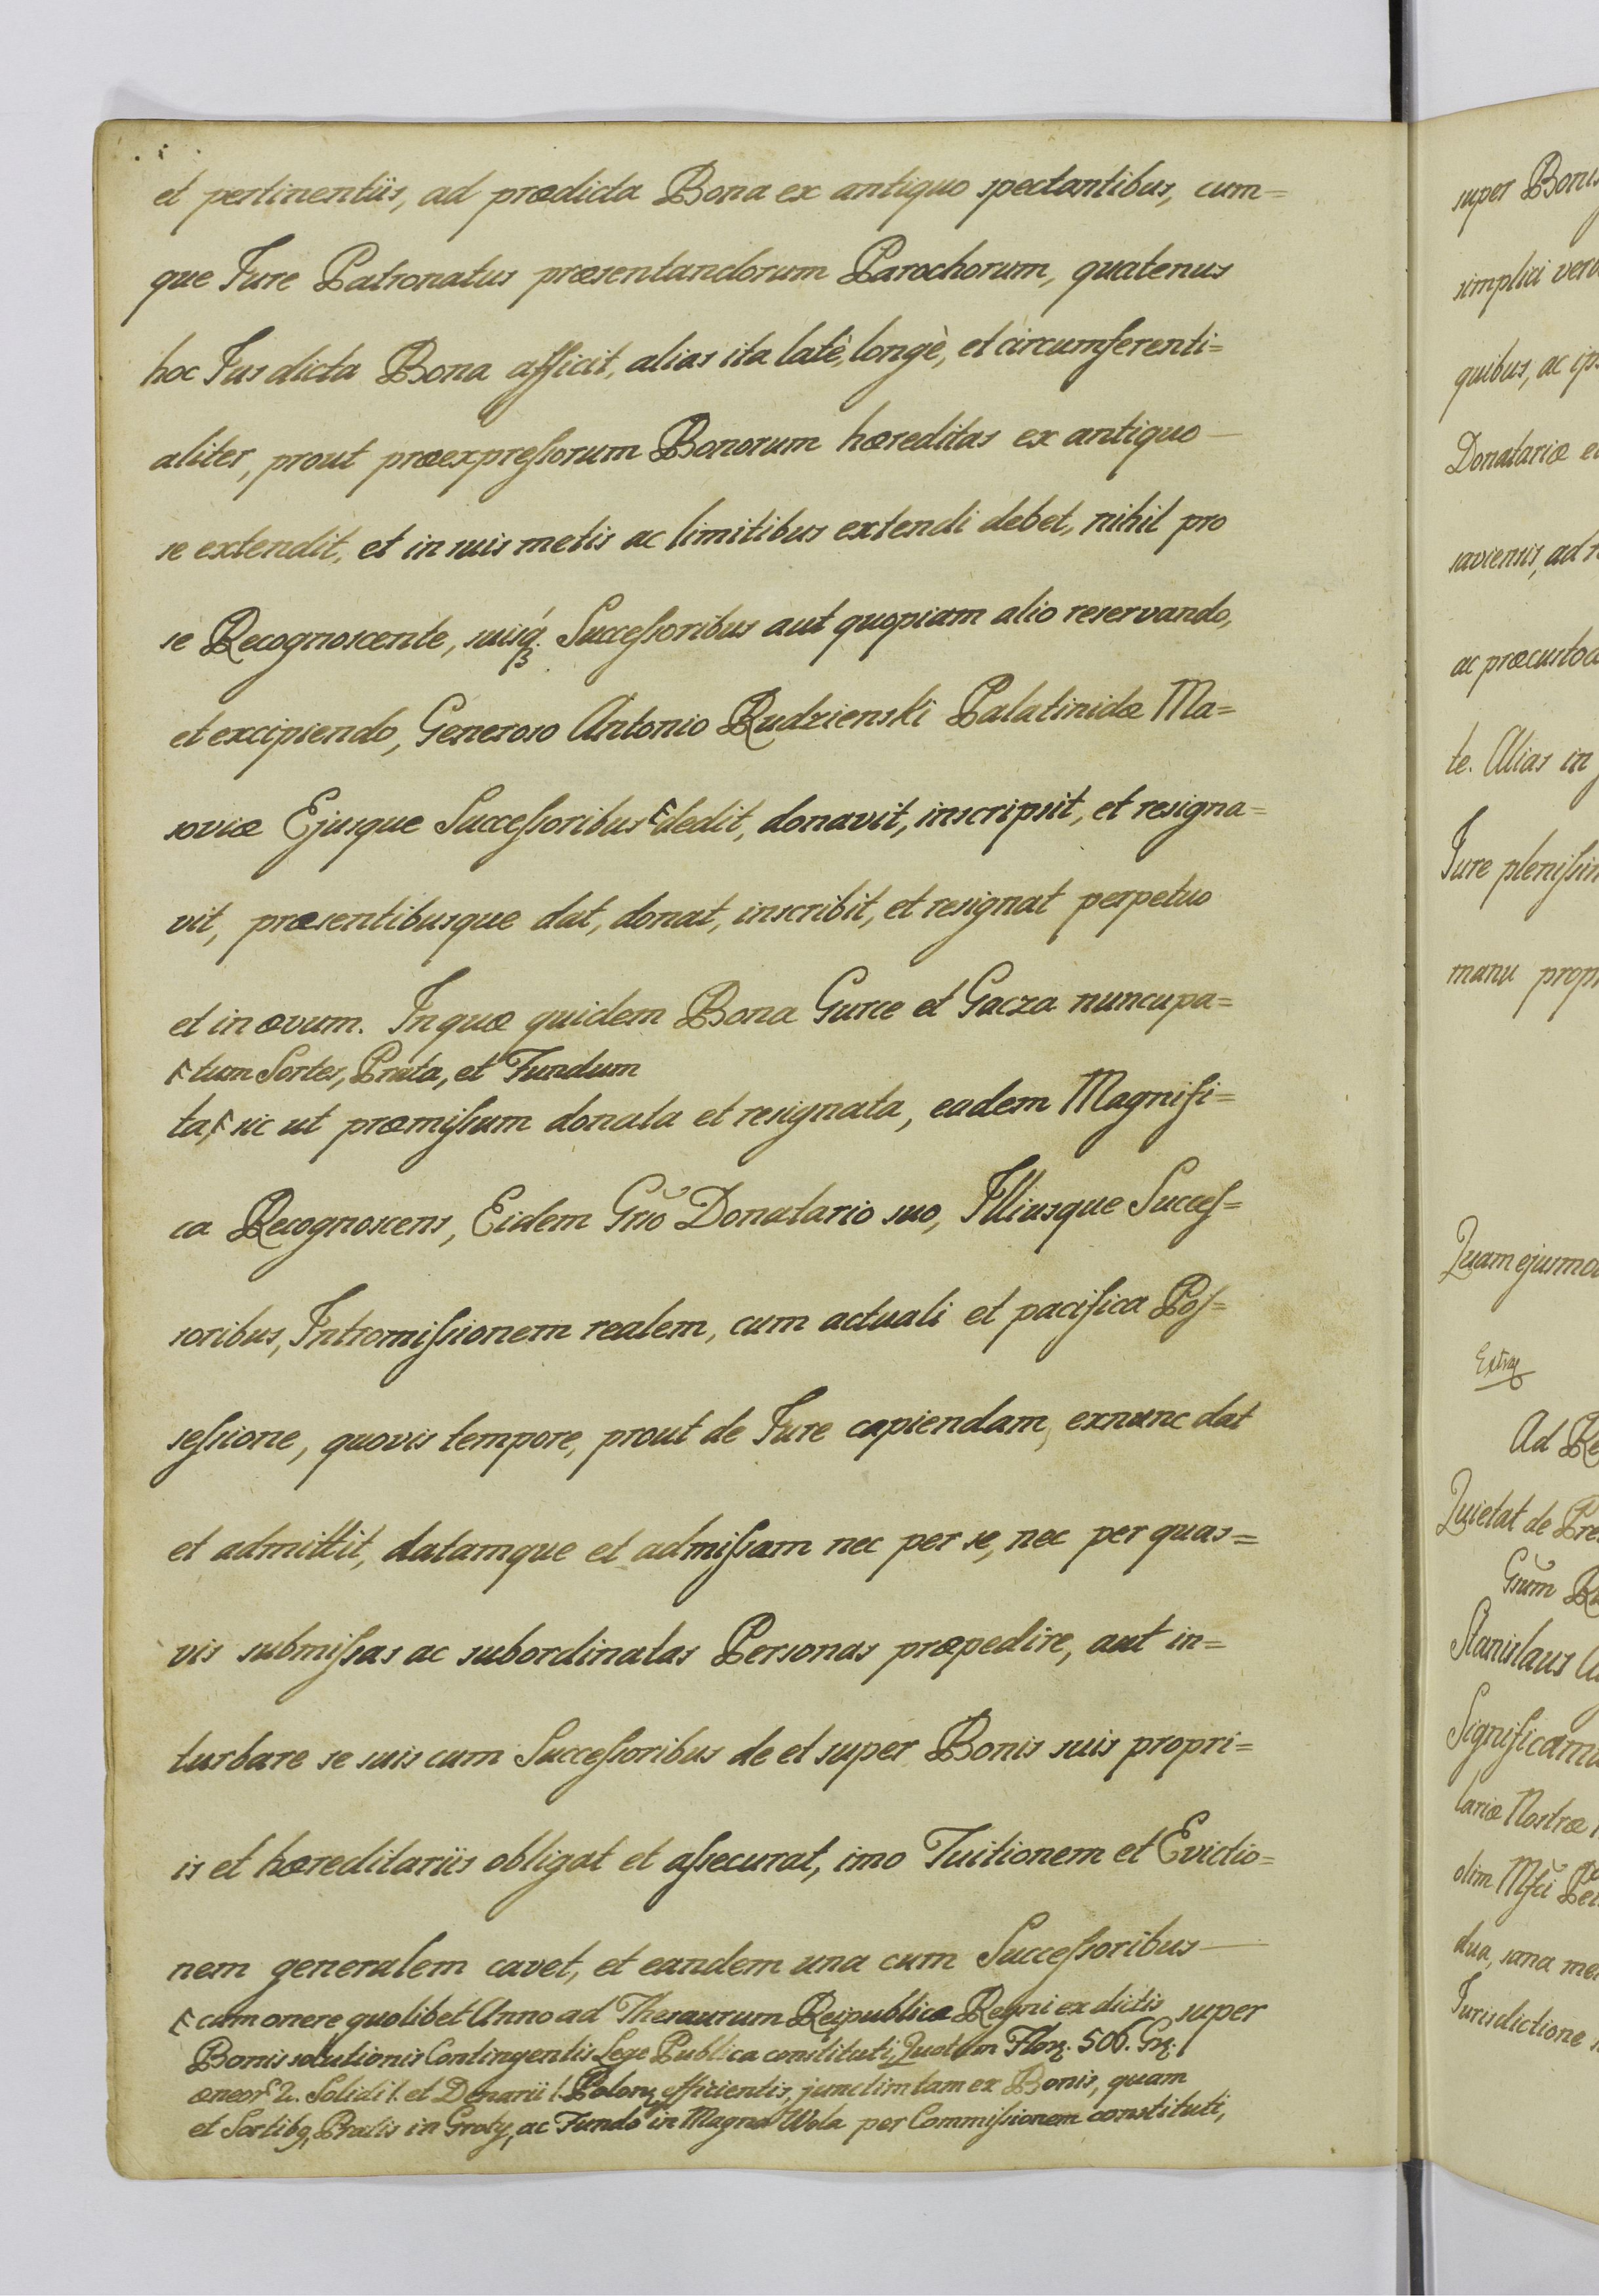 et pertinentiis, ad prædicta Bona ex antiquo spectantibus, cum=
que Jure Patronatus præsentandorum Parochorum, quatenus
hoc Jus dicta Bona afficit, alias ita latè, longè, et circumferenti=
aliter, prout præexpreſsorum Bonorum hæreditas ex antiquo —
se extendit, et in suis metis ac limitibus extendi debet, nihil pro
se Recognoscente, suisq́ꝫ Succeſsoribus aut quopiam alio reservando,
et excipiendo, Generoso Antonio Rudzienski Palatinidæ Ma=
soviæ Ejusque Succeſsoribus dedit, donavit, inscripsit, et resigna=
vit, præsentibusque dat, donat, inscribit, et resignat perpetuo
et in ævum. In quæ quidem Bona Gurce et Gacza nuncupa=
tum Sortes, Prata, et Fundum
ta, sic ut præmiſsum donata et resignata, eadem Magnifi=
ca Recognoscens, Eidem Grſõ Donatario suo, Illiusque Succeſ=
soribus, Intromiſsionem realem, cum actuali et pacifica Poſ=
seſsione, quovis tempore, prout de Jure capiendam, exnunc dat
et admittit, datamque et admiſsam nec per se, nec per quas=
vis submiſsas ac subordinatas Personas præpedire, aut in=
turbare se suis cum Succeſsoribus de et super Bonis suis propri=
is et hæreditariis obligat et aſsecurat, imo Tuitionem et Evictio=
nem generalem cavet, et eandem una cum Succeſsoribus —
super
cum onere quolibet Anno ad Thesaurum Reipublicæ Regni ex dictis
Bonis solutionis Contingentis Lege Publica constituti, Quotam Flor. 506. Gr.
æneor. 2. Solidi 1. et Denarii 1. Polon. efficientis, junctim tam ex Bonis, quam
et Sortibq, Pratis in Groty, ac Fundo in Magna Wola per Commiſsionem constituti,
super Bonis
simplici
quibus, ac
Donatariæ
saviensis, ad
ac præcustod
te. Alias in
Jure pleniſsim
manu propr
Quam ejusmod
Ad Re
Quietat de
Stanislaus
Significamu
lariæ Nostræ
olim
dua, sana
Jurisdictione